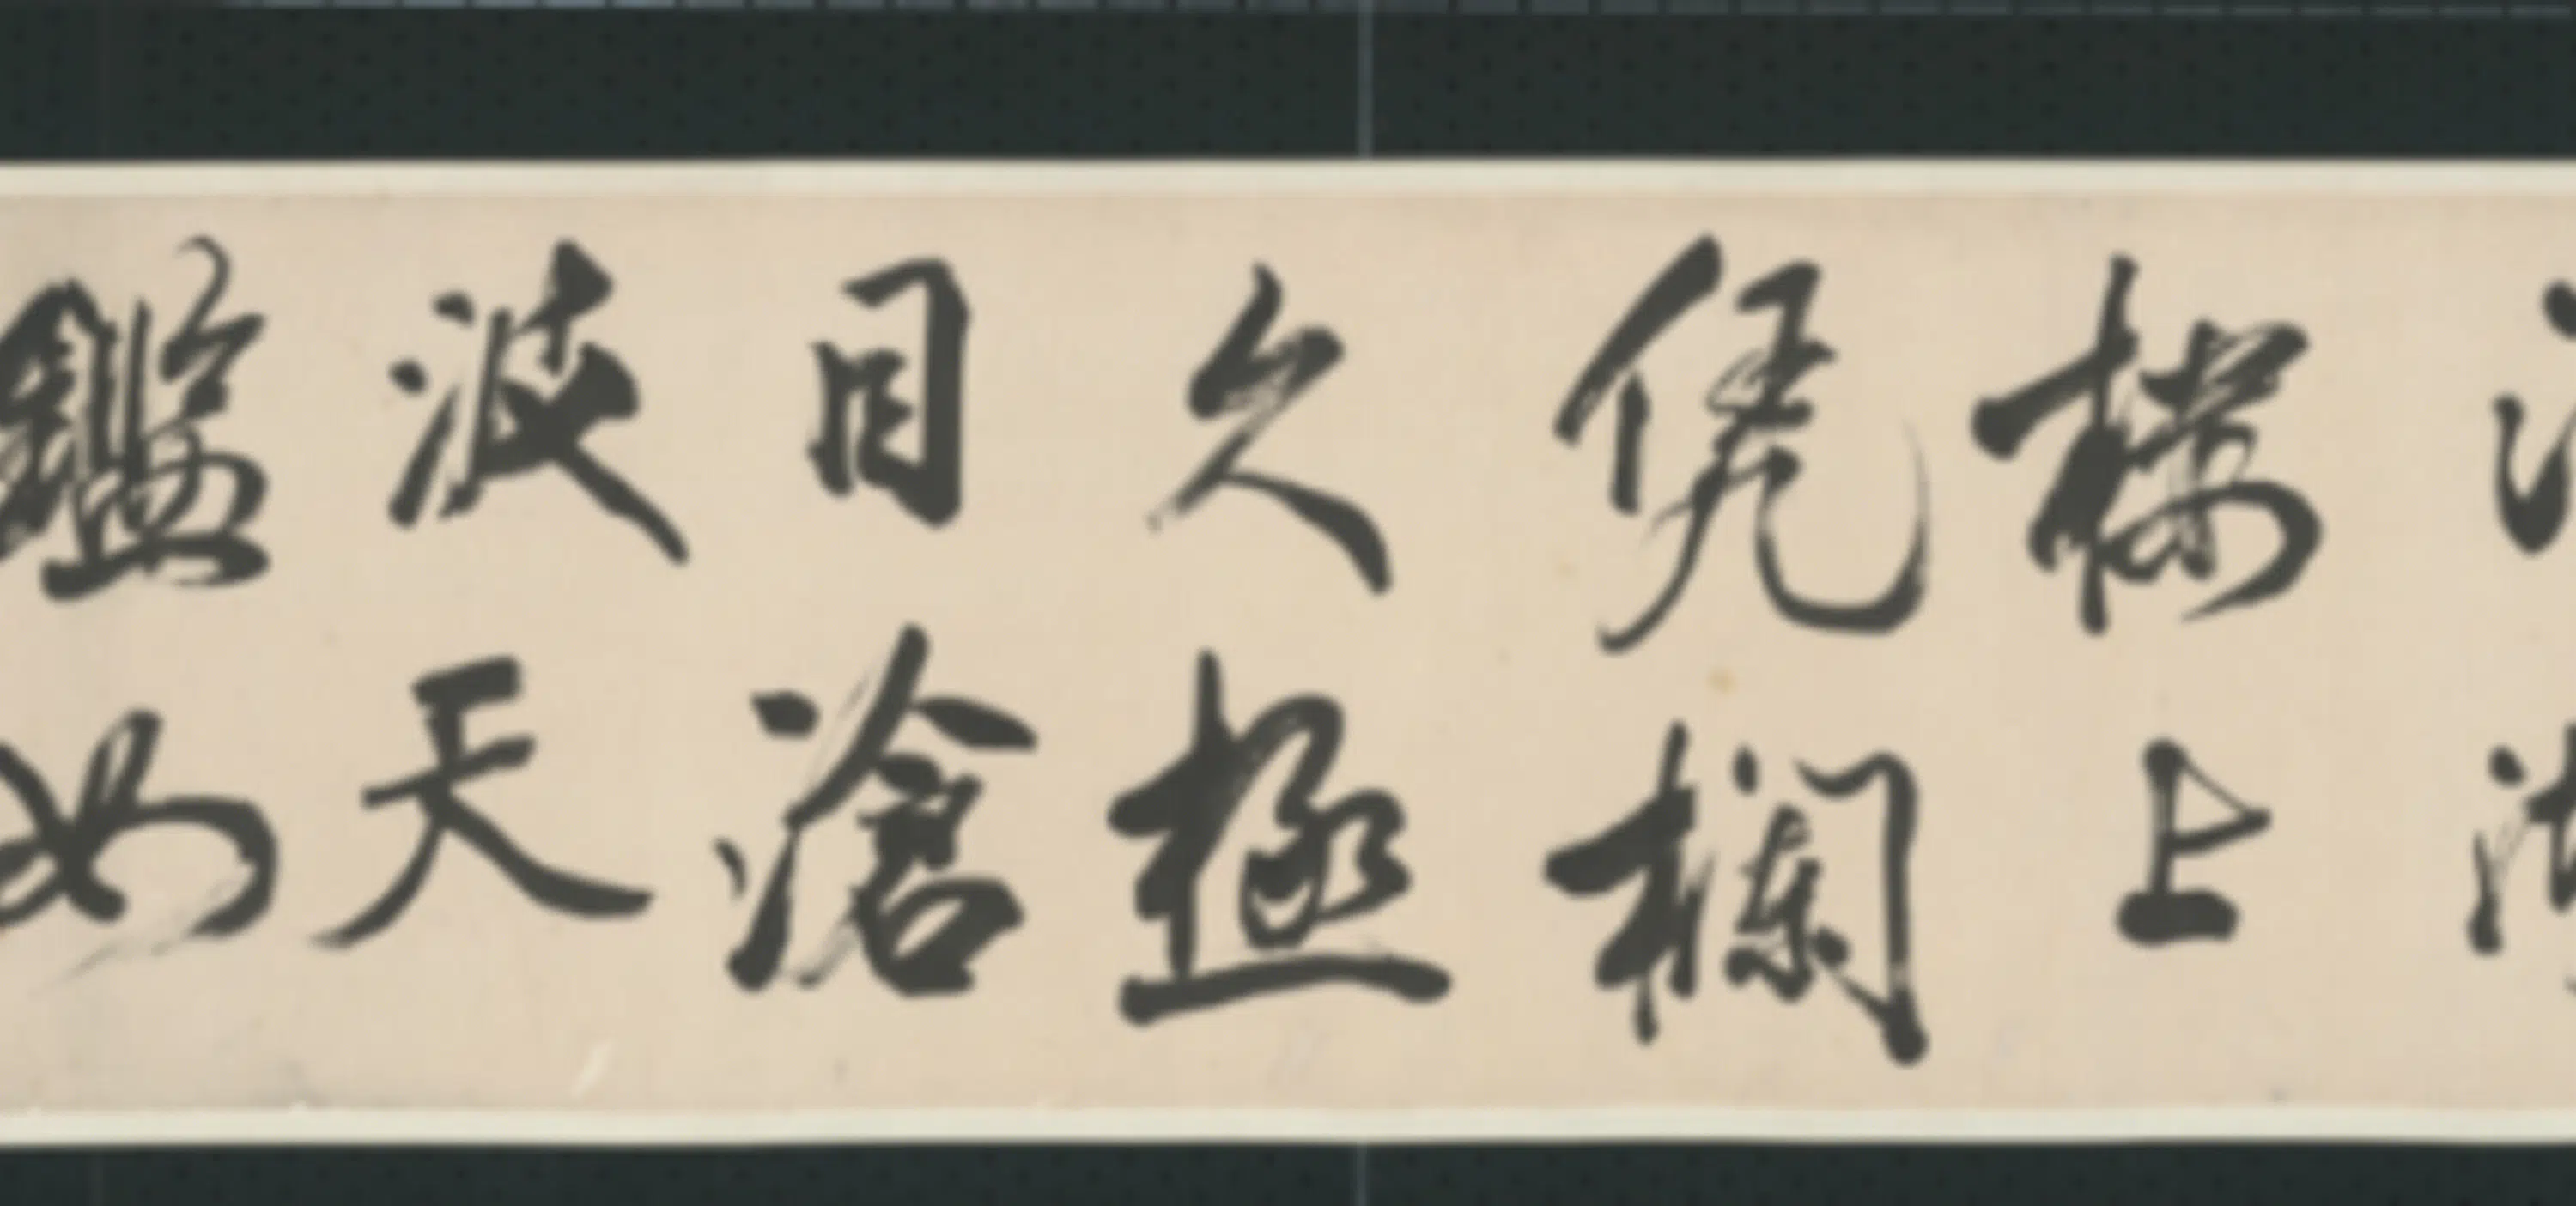 樓上
凭欄
久極
目滄
波天
鑑如